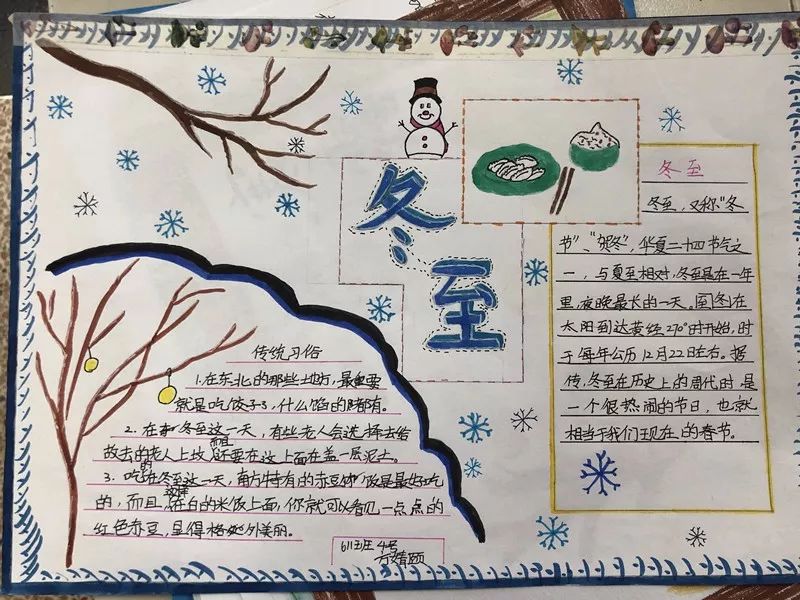 冬至
冬至
冬至，又称"冬
节"、"贺冬"，华夏二十四节气之
一，与夏至相对，冬至是在一年
里夜晚最长的一天。冬至在
太阳到达黄经270°时开始，时
于每年公历12月22日左右。据
传，冬至在历史上的周代时是
一个很热闹的节日，也就
相当于我们现在的春节。
传统习俗
1.在东北的那些地方，最重要
就是吃饺子，什么馅的都有。
2.在冬至这一天，有些老人会选择去给
故去的老人上坟，而且还要在这上面在盖一层泥土。
3.吃的在冬至这一天，南方特有的赤豆饭是最好吃
的，而且，这样在白的米饭上面，你就可以看见一点点的
红色赤豆，显得格外美丽。
611班 4号